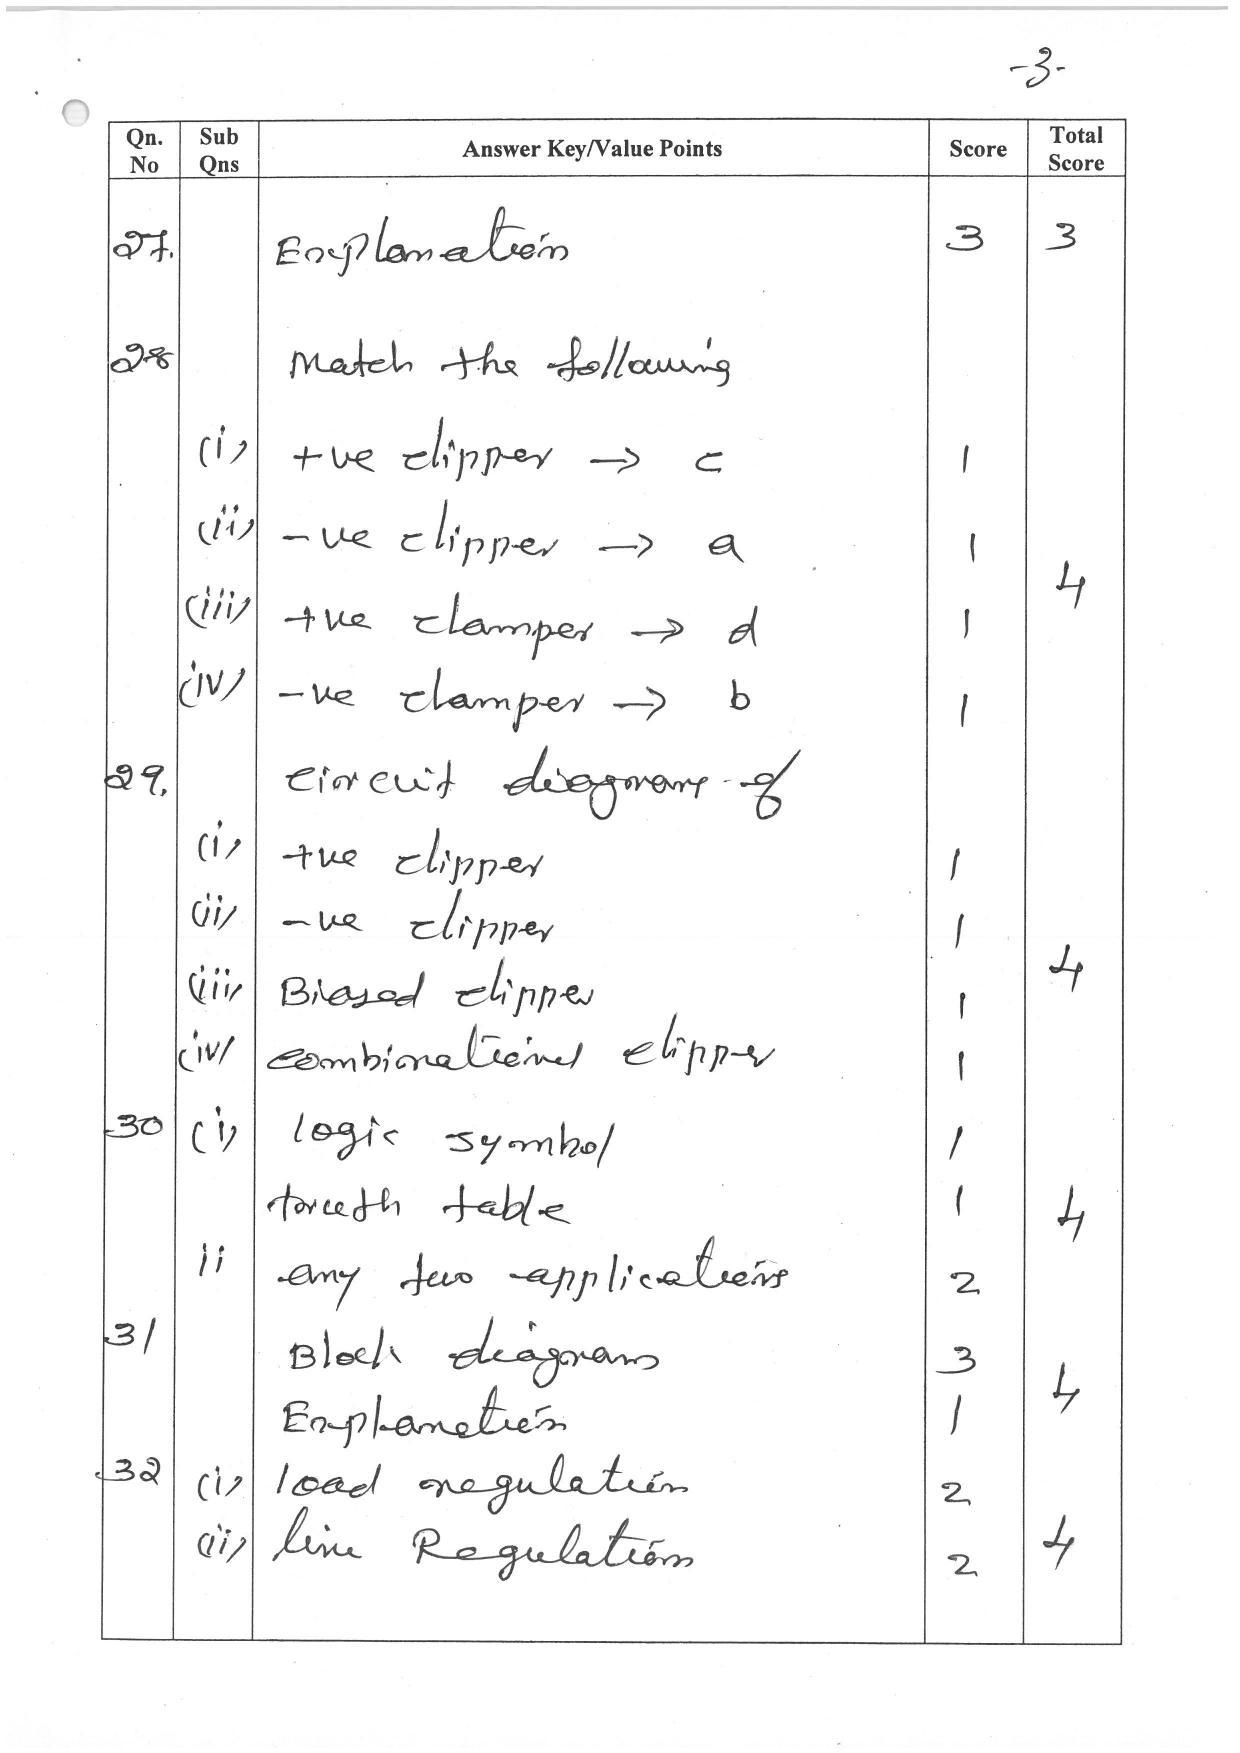 -3-
Qn. No Sub Qns Answer Key/Value Points Score Total Score
27. Explanation 3 3
28 Match the following
(i) +ve clipper → c 1
(ii) -ve clipper → a 1
4
(iii) +ve clamper → d 1
(iv) -ve clamper → b 1
29. Circuit diagram of
(i) +ve clipper 1
(ii) -ve clipper 1
4
(iii) Biased clipper 1
(iv) combinational clipper 1
30 (i) logic symbol 1
truth table 1 4
ii any two applications 2
31 Block diagram 3
4
Explanation 1
32 (i) load regulation 2
(ii) line Regulation 2 4